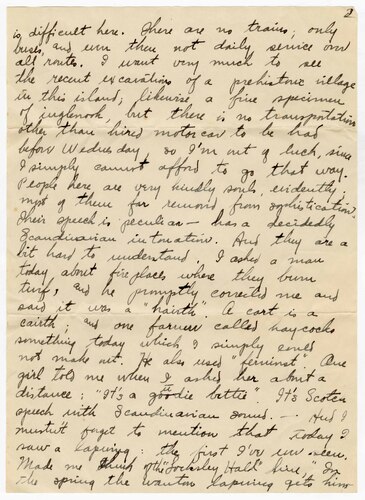 2
is difficult here. There are no trains; only
buses, and even then not daily service over
all routes. I want very much to see
the recent excavations of a prehistoric village
in this island; likewise, a fine specimen
of inglenook, but there is no transportation
other than hired motorcar to be had
before Wednesday so I'm out of luck, since
I simply cannot afford to go that way.
People here are very kindly souls, evidently;
most of them far removed from sophistication.
Their speech is peculiar — has a decidedly
Scandinavian intonation. And they are a
bit hard to understand. I asked a man
today about fireplaces where they burn
turf, and he promptly corrected me and
said it was a "hairth". A cart is a
cairth; and one farmer called haycocks
something today which I simply could
not make out. He also used "verminst" One
girl told me when I asked her about a
distance: "It's a goodie bittie". It's Scotch
speech with Scandinavian sound. — And I
mustn't forget to mention that today I
saw a lapwing: the first I've ever seen.
Made me think of the "Locksley Hall" line, "In
the spring the wanton lapwing gets him